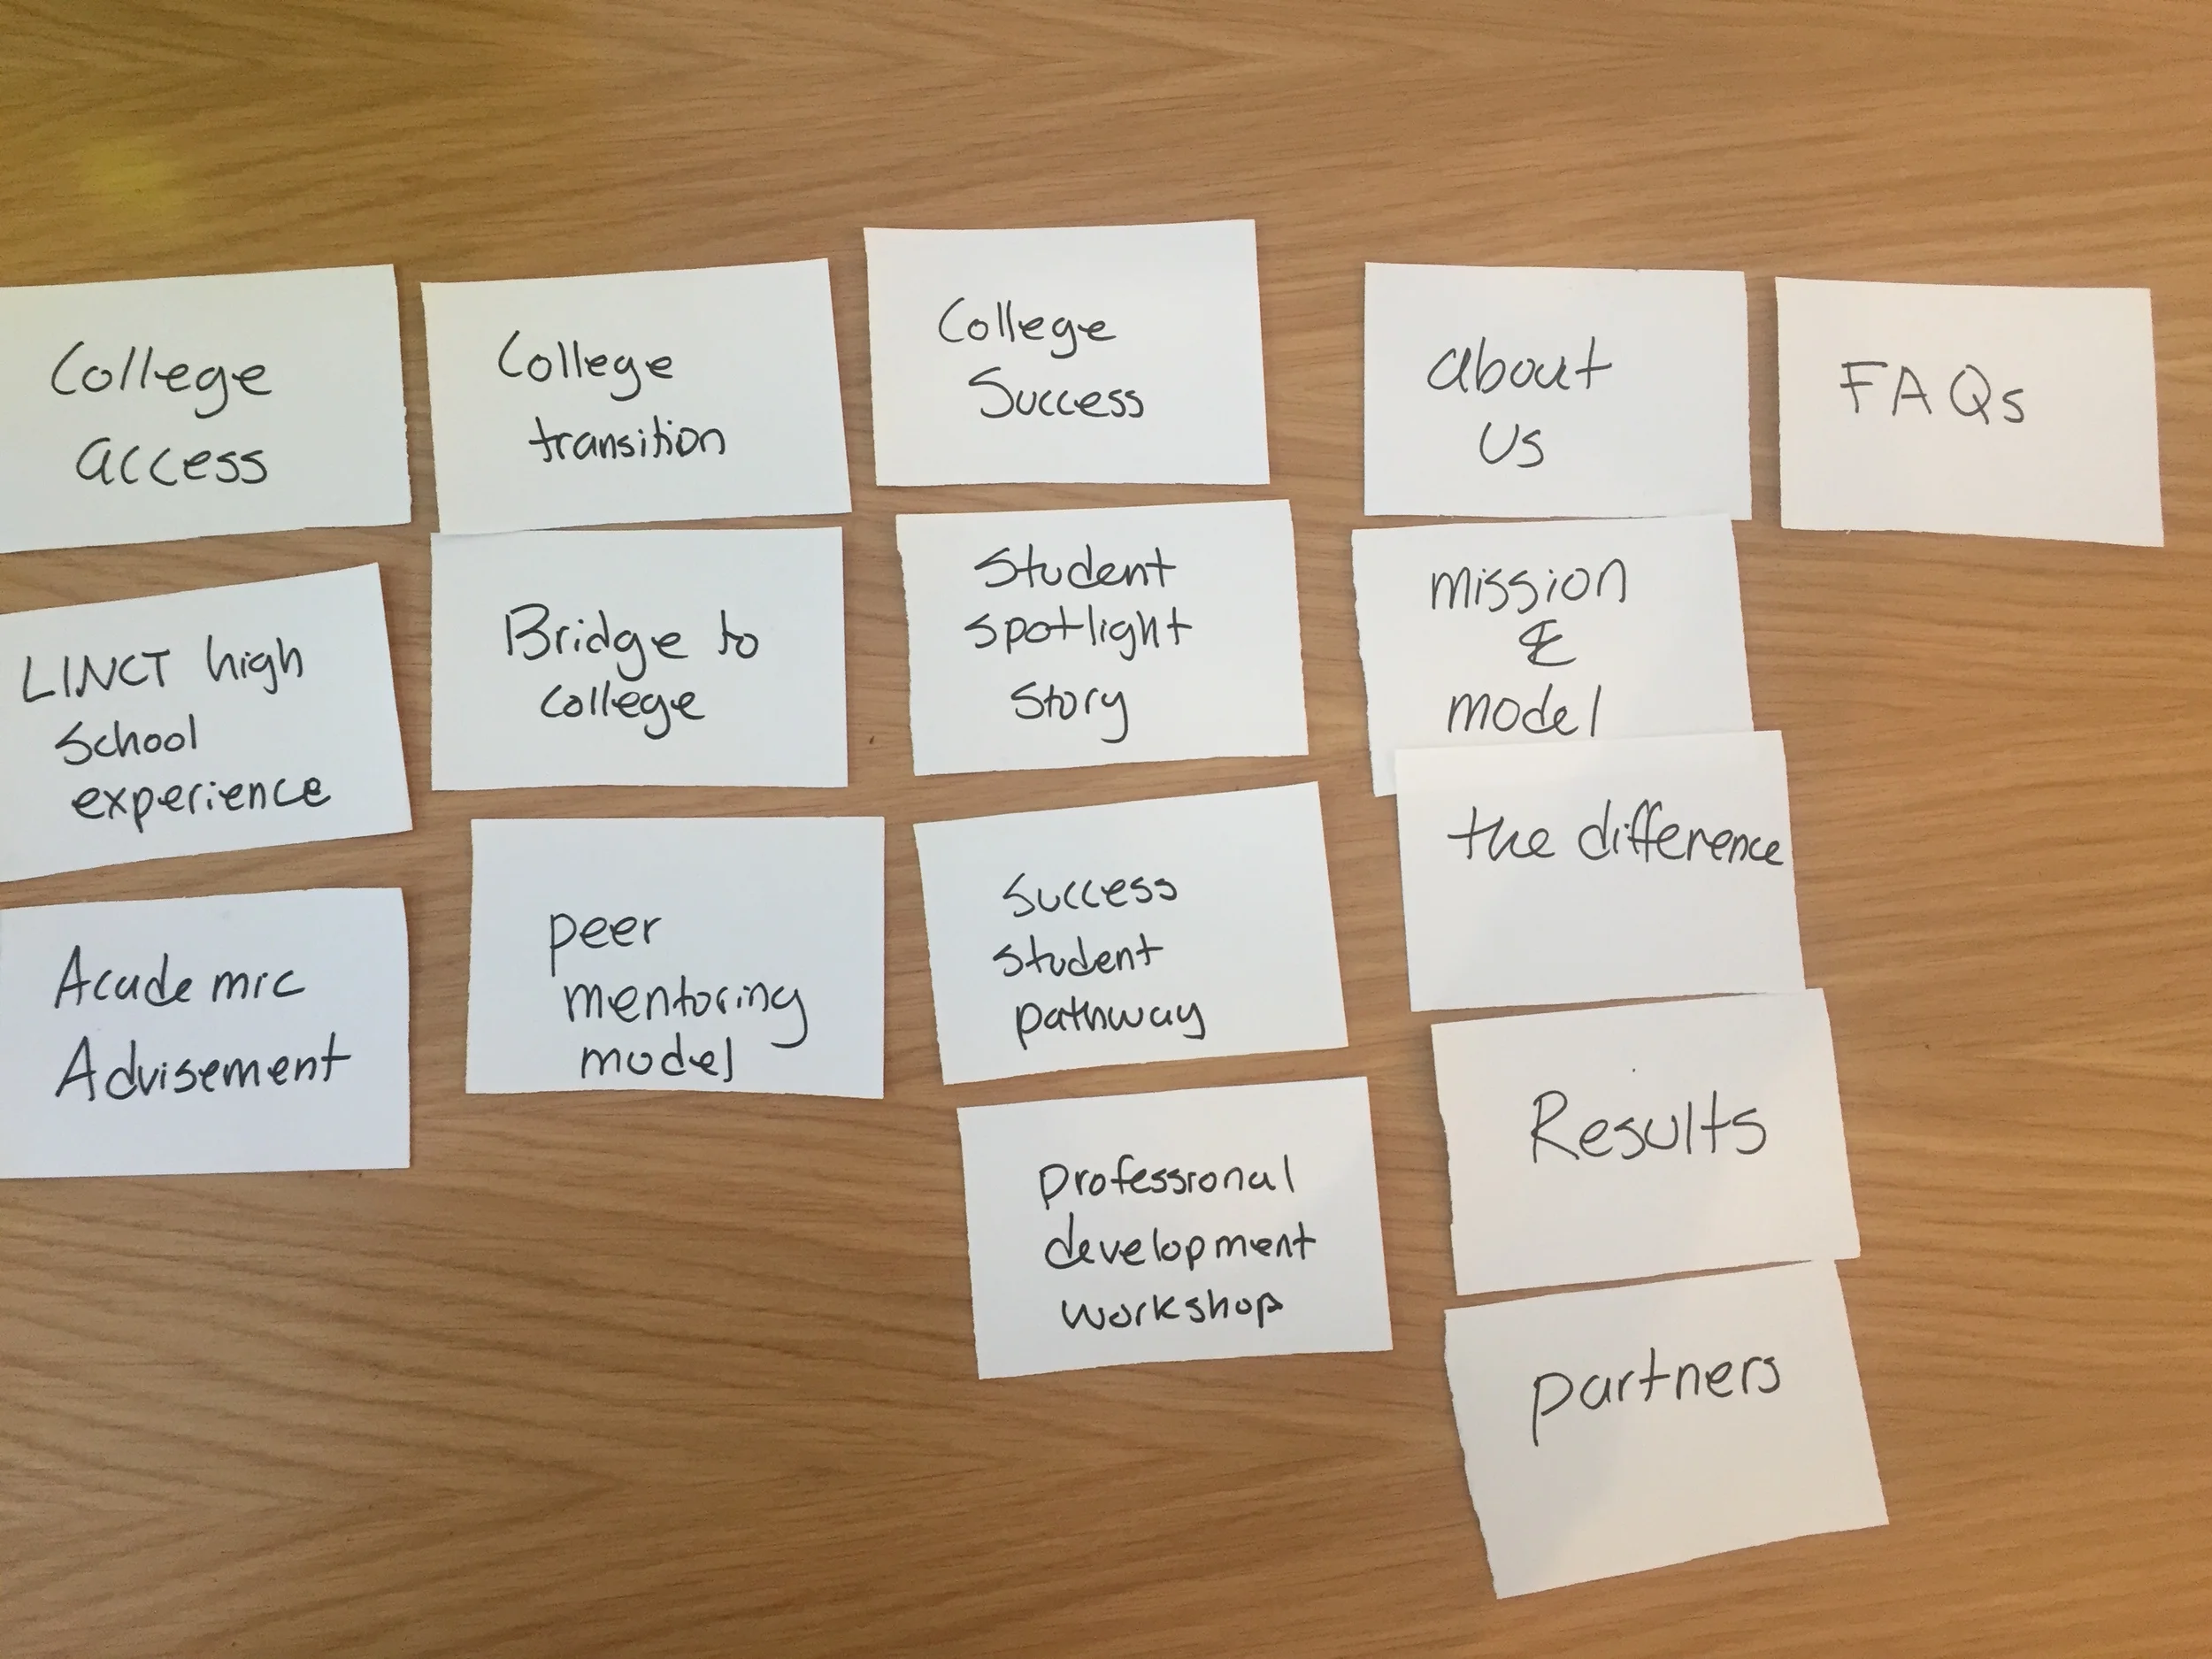 College
access
LINCT high
school
experience
Academic
Advisement
College
transition
Bridge to
college
peer
mentoring
model
College
Success
Student
spotlight
story
Success
student
pathway
professional
development
workshop
about
us
mission
&
model
the difference
Results
partners
FAQs